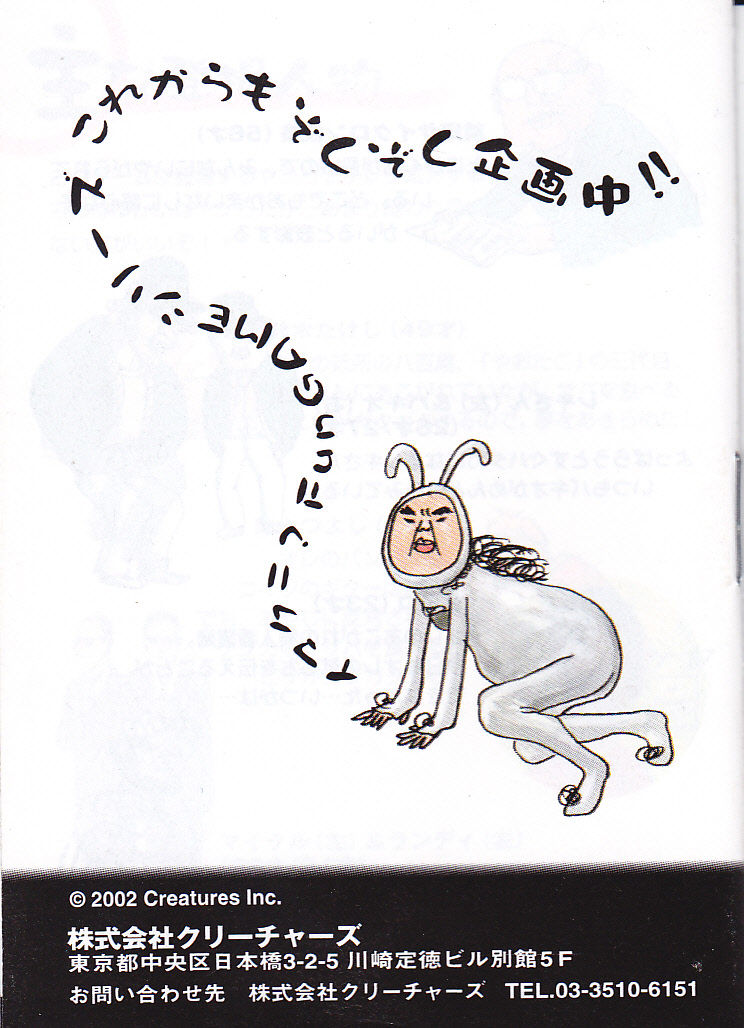 GAMEシリーズ これからもぞくぞく企画中!!
© 2002 Creatures Inc.
株式会社クリーチャーズ
東京都中央区日本橋3-2-5 川崎定徳ビル別館5F
お問い合わせ先　株式会社クリーチャーズ　TEL.03-3510-6151